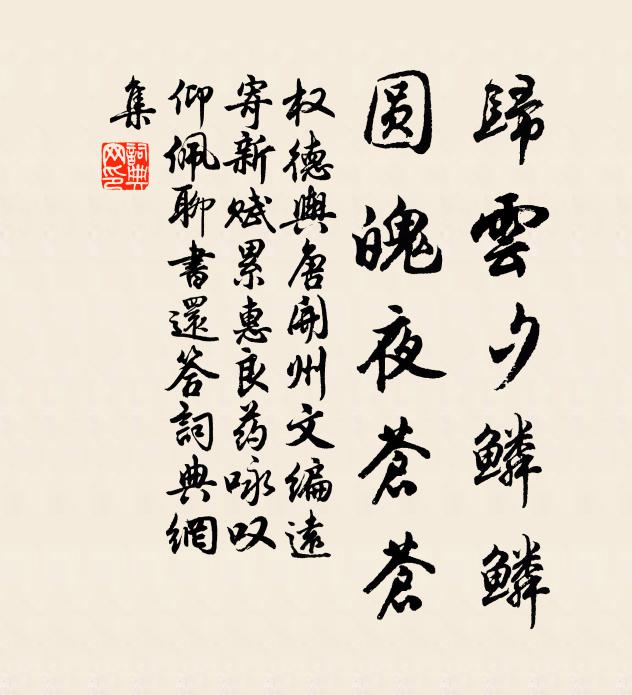 歸雲夕鱗鱗
圆魄夜蒼蒼
权德輿唐開州文編遠
寄新赋累惠良药咏叹
仰佩聊書還答詞典網
集
詞典
网印